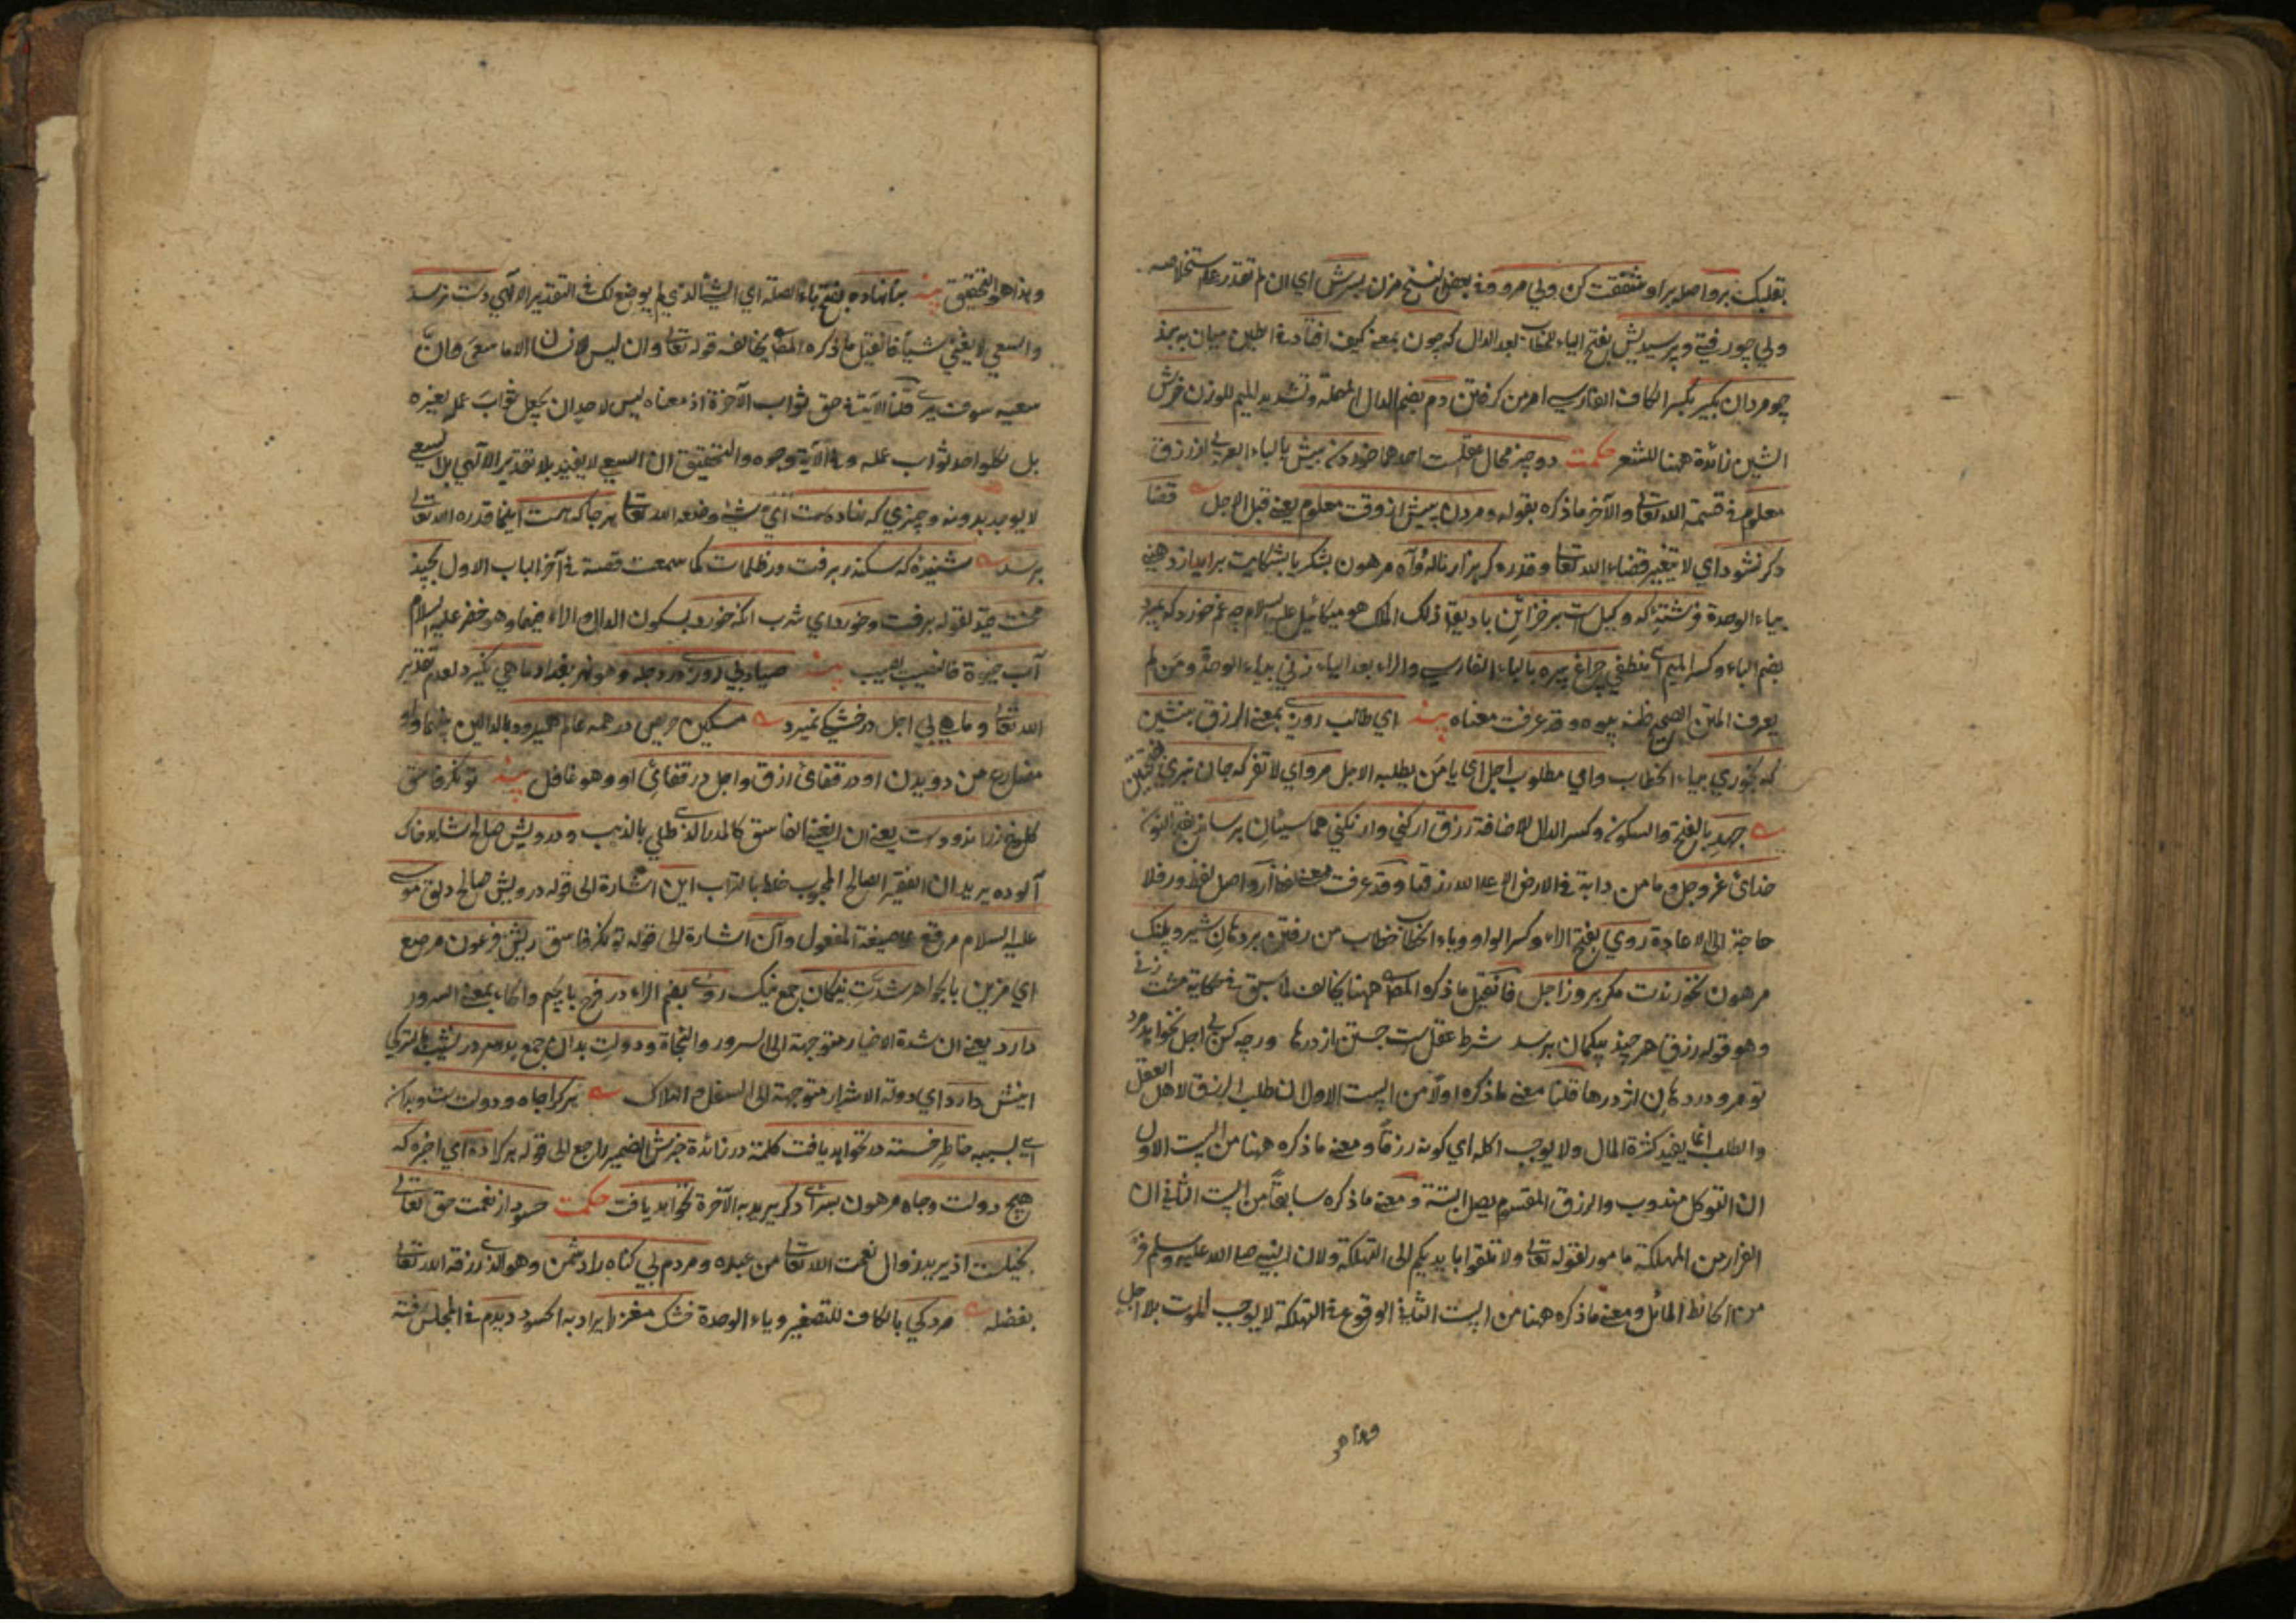 بقلبك برو اصله بر او شفقت كن ولي مرو وفي بعض النسخ مزن بسرش اي ان لم تقدر على استخلاصه
ولي چو رفتي وپرسيديش بفتح الياء للخطاب بعد الدال كه چون بمعنى كيف افتاد في الطين ميان به بند
چو مردان بگير بكسر الكاف الفارسي امر من گرفتن دم بضم الدال المهملة وتشديد الميم للوزن خرش
الشين زائدة ههنا للشعر حكمت دو چيز محال عقلست احدهما خوردن بيش بالباء العربي از رزق
معلوم في قسمة الله تعالى والآخر ما ذكره بقوله ومردن پيش از وقت معلوم يعني قبل الاجل قضا
دكر نشود اي لا يتغير قضاء الله تعالى وقدره گر هزار ناله وآه مرهون بشكر يا بشكايت برآيد از دهني
بياء الوحدة فرشتۀ كه وكيلست بر خزائن باد يقال ذلك الملك هو ميكائيل عليه السلام چه غم خورد كه بميرد
بضم الباء وكسر الميم اي ينطفي چراغ پيره بالباء الفارسي والراء بعد الياء زني بياء الوحدة ومن لم
يعرف المتن الصحيح ظنه بيوه وقد عرفت معناه پند اي طالب روزي بمعنى الرزق بنشين
كه بخوري بياء الخطاب واي مطلوب اجل اي يا من يطلبه الاجل مرو اي لا تفر كه جان نبري
جهد بالفتح والسكون وكسر الدال للاضافة رزق ار كني وار نكني هما سيان برساند بفتح النون
خداي عز وجل وما من دابة في الارض الا على الله رزقها وقد عرفت معنى لفظ ار واصل لفظ ور فلا
حاجة الى الاعادة روي بفتح الراء وكسر الواو وياء الخطاب خطاب من رفتن بر دهان شير وپلنگ
مرهون نخورندت مكر بروز اجل فان قيل ما ذكره المص ههنا يخالف لما سبق في حكاية مشت زني
وهو قوله رزق هر چند بيكمان برسد شرط عقلست جستن از درها ورچه كس بي اجل نخواهد مرد
تو مرو در دهان اژدرها قلنا معنى ما ذكره اولا من البيت الاول ان طلب الرزق لاهل العقل
والطلب انما يفيد كثرة المال ولا يوجب اكله اي كونه رزقا ومعنى ما ذكره ههنا من البيت الاول
ان التوكل مندوب والرزق المقسوم يصل البتة ومعنى ما ذكره سابقا من البيت الثاني ان
الفرار من المهلكة مامور لقوله تعالى ولا تلقوا بايديكم الى التهلكة ولان النبي صلى الله عليه وسلم فر
من الحائط المائل ومعنى ما ذكره ههنا من البيت الثاني الوقوع في التهلكة لا يوجب الموت بلا اجل
وهذا هو
وهذا هو التحقيق پند بنانهاده بفتح باء الصلة اي الشئ الذي لم يوضع لك في التقدير الالهي دست نرسد
والسعي لا يغني شيأ فان قيل ما ذكره المص يخالف قوله تعالى وان ليس للانسان الا ما سعى وانّ
سعيه سوف يرى قلنا الآية في حق ثواب الآخرة اذ معناه ليس لاحد ان يجعل ثواب عمله لغيره
بل لكل واحد ثواب عمله وفي الآية وجوه والتحقيق ان السعي لا يفيد بلا تقدير الالهي بل السعي
لا يوجد بدونه وچيزي كه نهاده است اي شئ وضعه الله تعالى هر جا كه هست اينما قدره الله تعالى
برسد شنيدۀ كه سكندر برفت در ظلمات كما سمعت قصة في آخر الباب الاول بچند
محنت قيد لقوله برفت وخورد اي شرب انكه خورد بسكون الدال والراء فيهما وهو خضر عليه السلام
آب حيوة فالنصيب يصيب پند صياد بي روزي در دجله وهو نهر بغداد ماهي نگيرد لعدم تقدير
الله تعالى وماهي بي اجل در خشكي نميرد مسكين حريص در همه عالم هميرود بالدالين
مضارع من دويدن او در قفاي رزق واجل در قفاي او وهو غافل پند توانگر فاسق
كلوخ زراندودست يعني ان الغني الفاسق كالمدر الذي طلي بالذهب ودرويش صالح شاهد خاك
آلوده يريد ان الفقير الصالح المحبوب خلط بالتراب اين اشارة الى قوله درويش صالح دلق موسى
عليه السلام مرقع على صيغة المفعول وآن اشارة الى قوله توانگر فاسق ريش فرعون مرصع
اي مزين بالجواهر شدّت نيكان جمع نيك روي بضم الراء در فرج بالجيم والحاء بمعنى السرور
دارد يعني ان شدة الاخيار متوجهة الى السرور والنجاة ودولت بدان جمع بد سر در نشيب بالتركي
اينش دارد اي دولة الاشرار متوجهة الى السفل والهلاك هر كرا جاه ودولتست وبدان
اي بسببه خاطر خسته در نخواهد يافت كلمة در زائدة خبرش الضمير راجع الى قوله هر كرا ده اي اخبره كه
هيچ دولت وجاه مرهون بسراي دگر يريد به الآخرة نخواهد يافت حكمت حسود از نعمت حق تعالى
بخيلست اذ يريد زوال نعمت الله تعالى من عبده ومردم بي گناه را دشمن وهو الذي رزقه الله تعالى
بفضله مردكي بالكاف للتصغير وياء الوحدة خشك مغز را يراد به الحسود ديدم في المجلس رفته